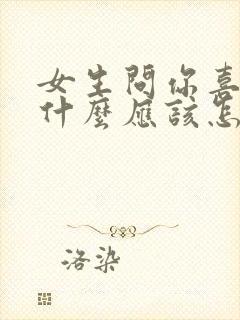 女生問你喜
什麼應該怎
洛染